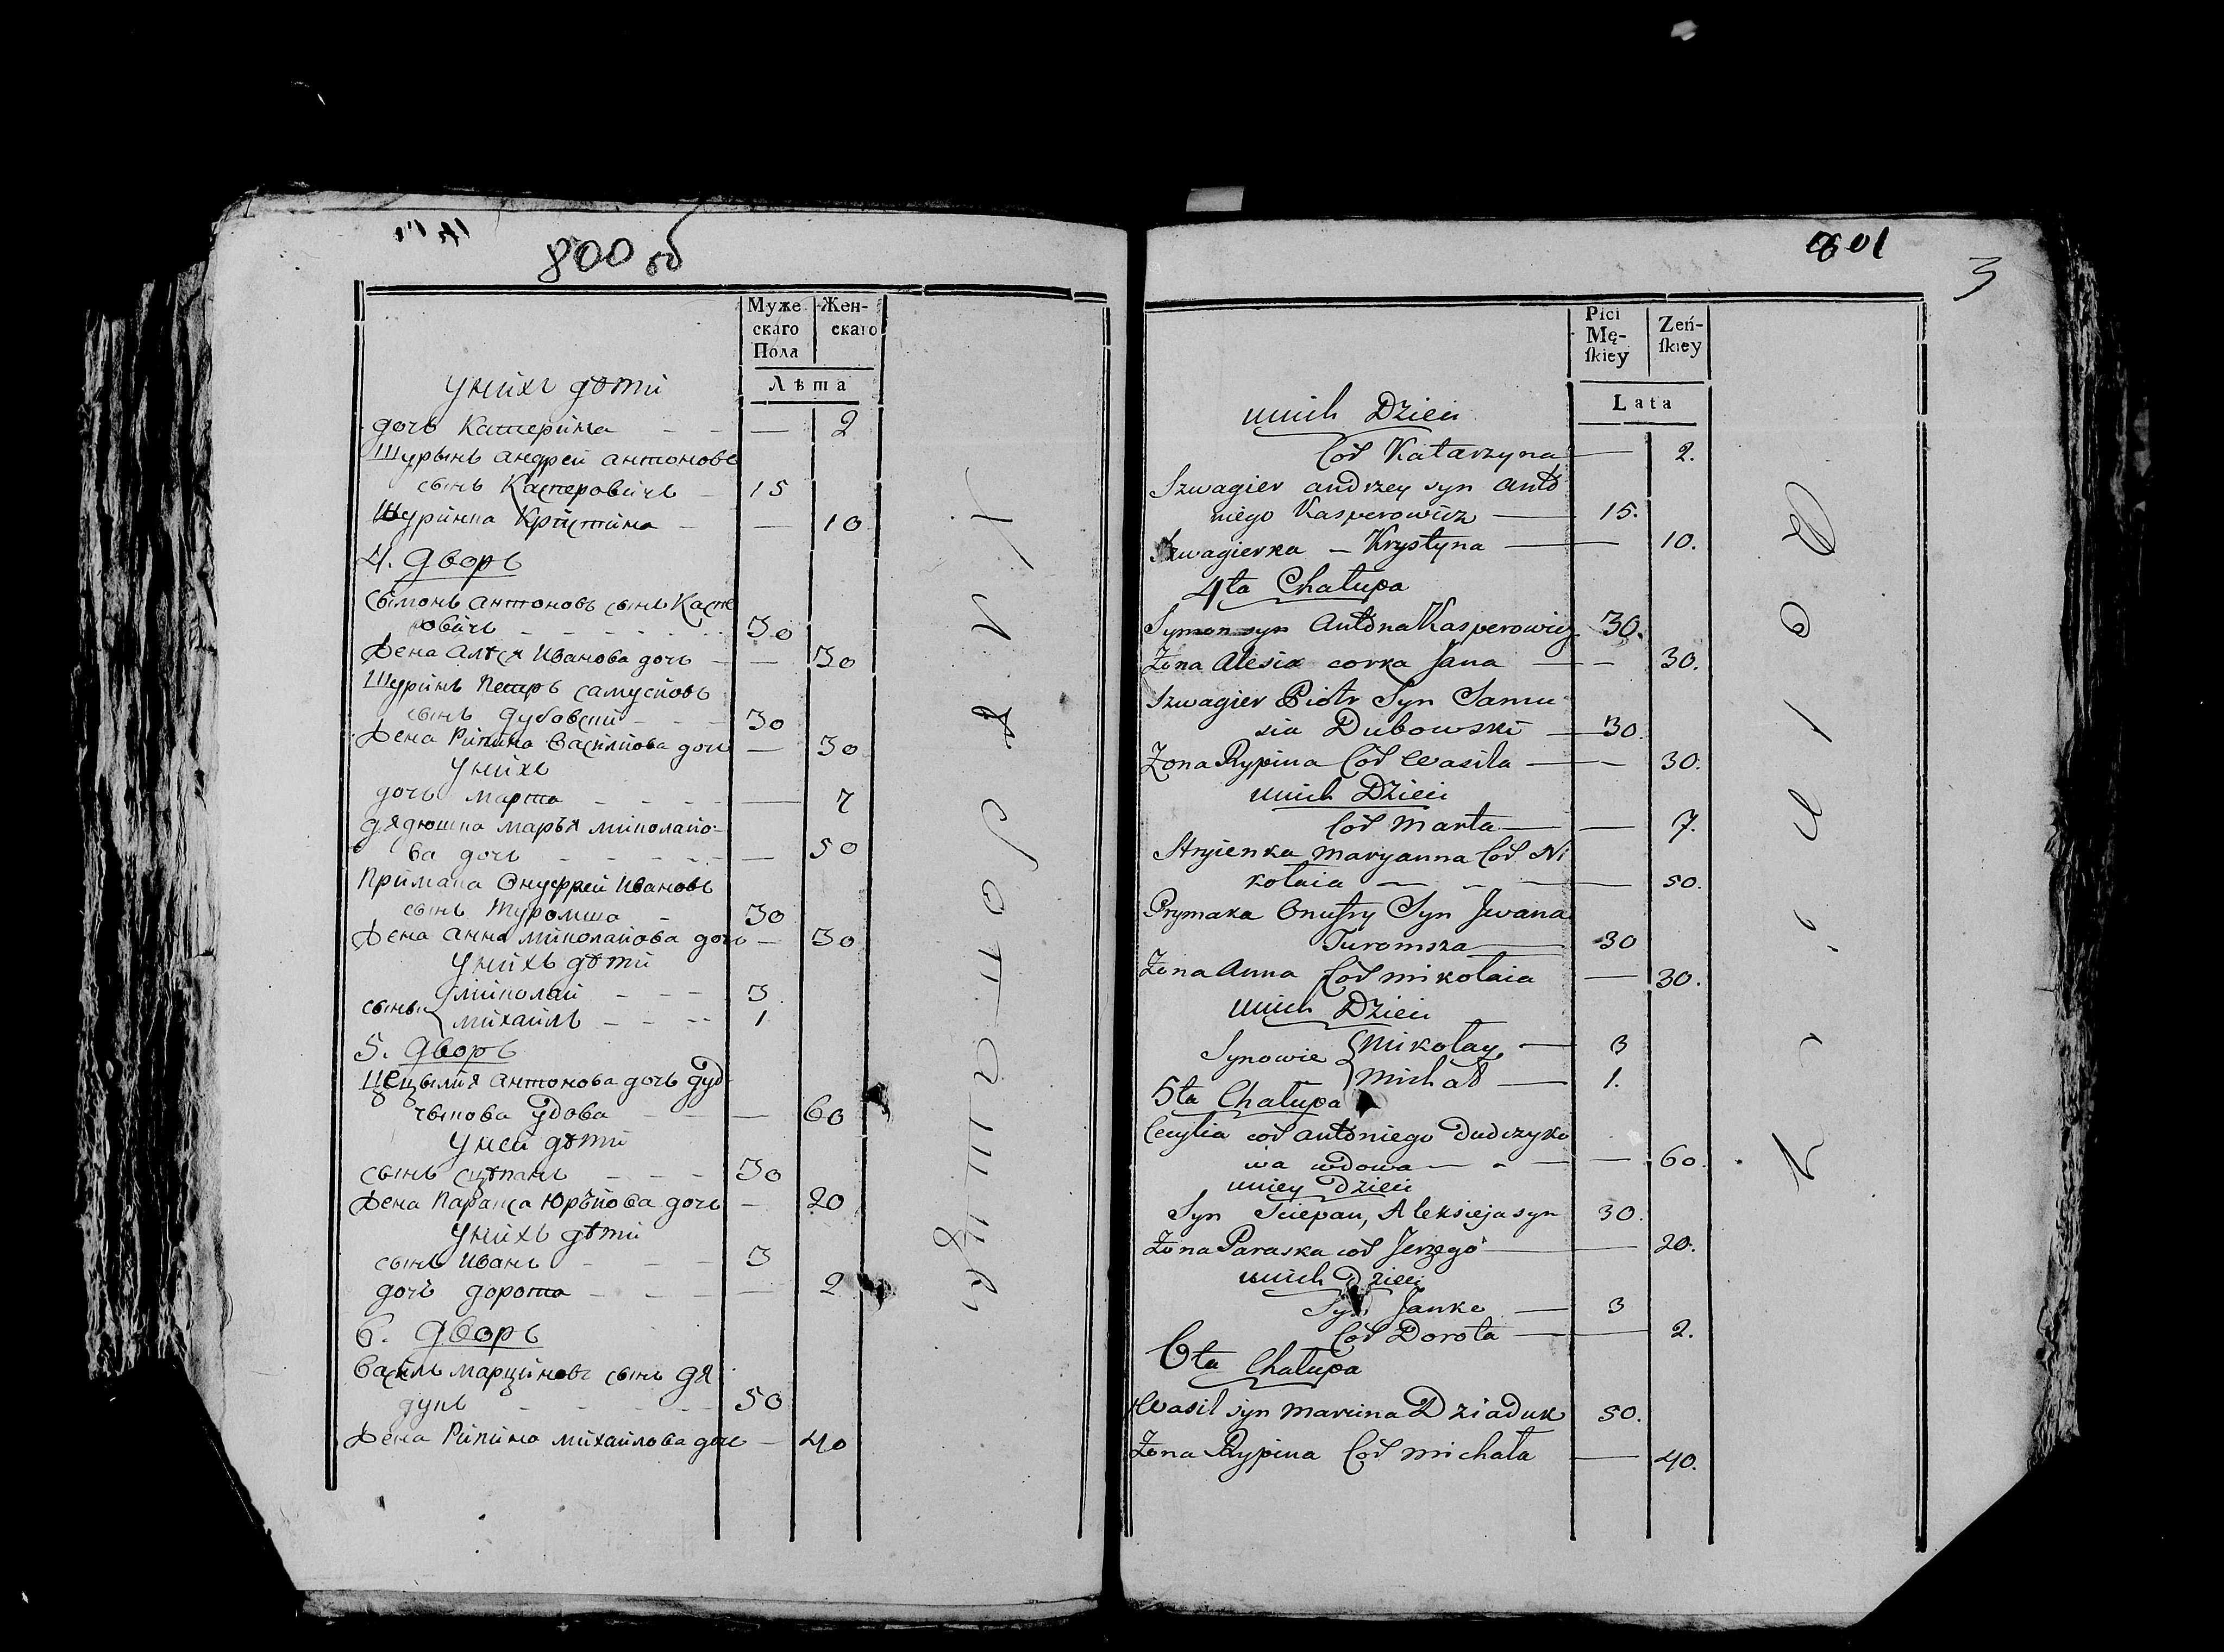 800 об
Муже Жен-
скаго скаго
Пола
Лѣта
Унихъ дѣти
дочь Катерина — 2
Шурынъ андрей антоновъ
сынъ Касперовичъ 15
Шуринка Крістина — 10
4. Дворъ
Сымонъ антоновъ сынъ Каспе
ровичъ 30
Жена Алѣся Иванова дочь — 30
Шуринъ Петръ самусиовъ
сынъ Дубовски 30
Жена Рипина Василиова дочь — 30
Унихъ
дочь марта — 7
дядюшка маръя миколаио-
ва дочь — 50
Примака Онуфрей Ивановъ
сынъ Туромша 30
Жена анна миколаиова дочь — 30
Унихъ дѣти
сыны миколаи 3
михаилъ 1
5. Дворъ
Цецылия антонова дочь Дуд
чыкова удова — 60
Унеи дѣти
сынъ сцѣпанъ 30
Жена Параска Юръиова дочь — 20
Унихъ дѣти
сынъ иванъ 3
дочь дорота — 2
6. Дворъ
Василь марциновъ сынъ Дя
дукъ 50
Жена Рипина михаилова дочь — 40
801
3
Płci Zeń-
Mę- skiey
skiey
Lata
unich Dzieci
Cór Katarzyna — 2.
Szwagier andrzey syn anto
niego Kasperowicz — 15.
Szwagierka — Krystyna — 10.
4ta Chałupa
Symon syn Antona Kasperowicz 30.
Zona Alesia corka Jana — 30.
Szwagier Piotr Syn Samu
sia Dubowski — 30.
Zona Rypina Cór Wasila — 30.
unich Dzieci
Cór Marta — 7.
Stryienka maryanna Cór Ni
kołaia — 50.
Prymaka Onufry Syn Jwana
Turomsza — 30
Zona Anna Cór mikołaia — 30.
unich Dzieci
Synowie Mikołay — 3
michał — 1.
5ta Chałupa
Cecylia cór antoniego Dudczyko
wa wdowa — 60.
uniey Dzieci
Syn Sciepan, Aleksieja syn 30.
Zona Paraska cór Jerzego — 20.
unich Dzieci
Syn Janko — 3
Cór Dorota — 2.
6ta Chałupa
Wasil syn Marcina Dziaduk 50.
Zona Rypina Cór michała — 40.